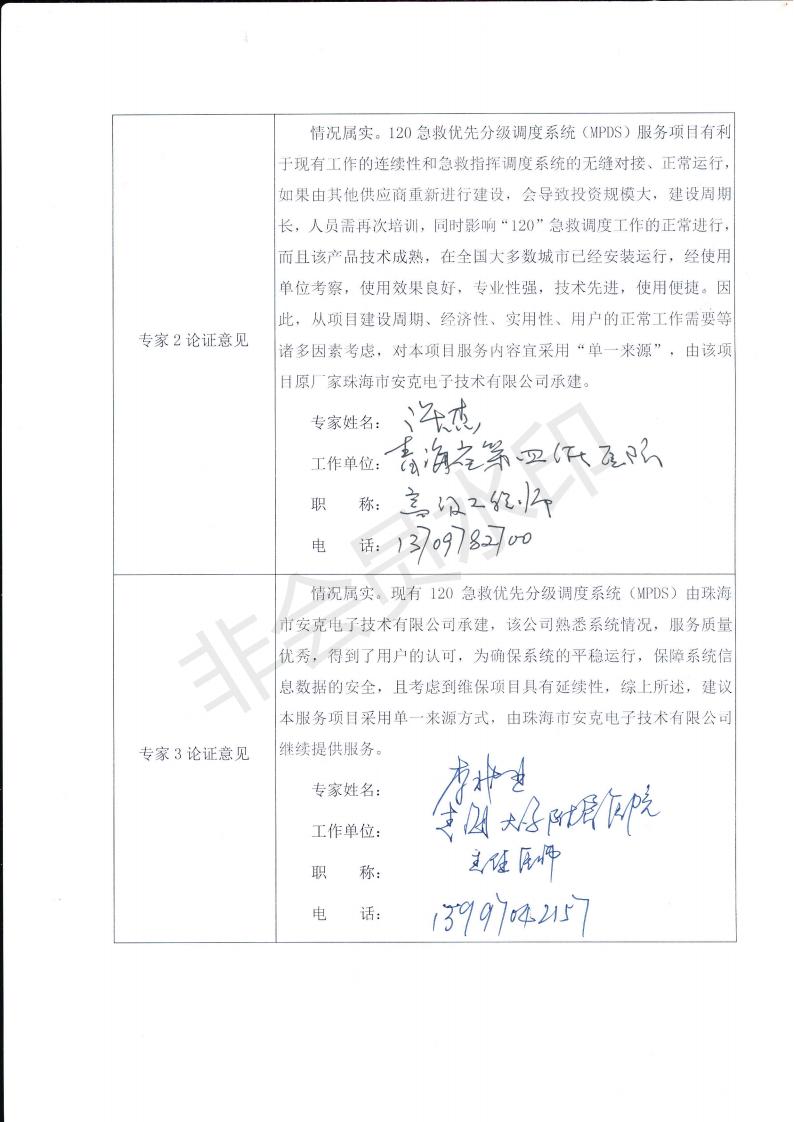 情况属实。120 急救优先分级调度系统（MPDS）服务项目有利
于现有工作的连续性和急救指挥调度系统的无缝对接、正常运行，
如果由其他供应商重新进行建设，会导致投资规模大，建设周期
长，人员需再次培训，同时影响“120”急救调度工作的正常进行，
而且该产品技术成熟，在全国大多数城市已经安装运行，经使用
单位考察，使用效果良好，专业性强，技术先进，使用便捷。因
此，从项目建设周期、经济性、实用性、用户的正常工作需要等
专家 2 论证意见
诸多因素考虑，对本项目服务内容宜采用“单一来源”，由该项
目原厂家珠海市安克电子技术有限公司承建。
专家姓名： 许杰
工作单位：青海省第四人民医院
职 称：高级工程师
电 话：13709782700
情况属实。现有 120 急救优先分级调度系统（MPDS）由珠海
市安克电子技术有限公司承建，该公司熟悉系统情况，服务质量
优秀，得到了用户的认可，为确保系统的平稳运行，保障系统信
息数据的安全，且考虑到维保项目具有延续性，综上所述，建议
本服务项目采用单一来源方式，由珠海市安克电子技术有限公司
继续提供服务。
专家 3 论证意见
专家姓名：
工作单位：青海大学附属医院
职 称：主任医师
电 话：13997042157
非会员水印